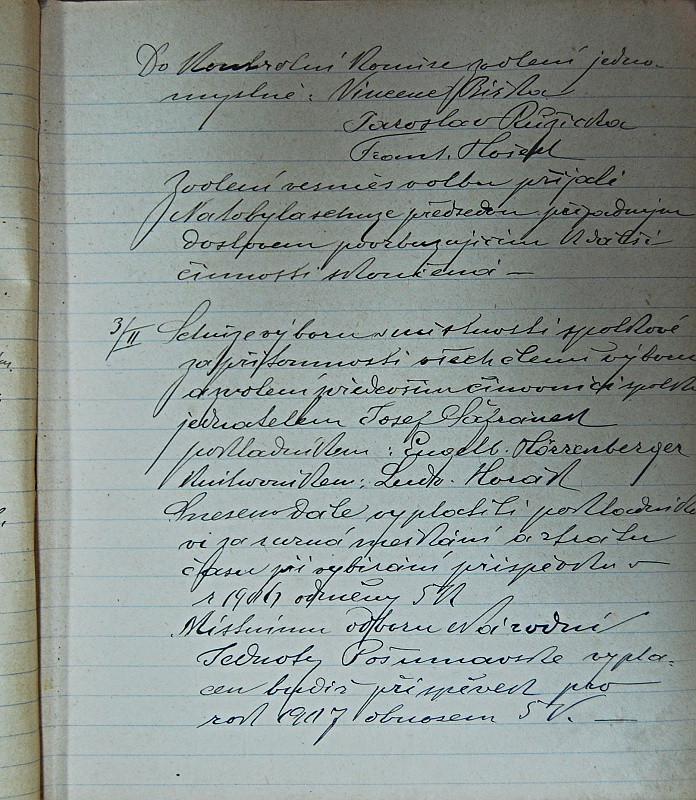 Do Kontrolní Komise zvoleni jedno-
myslně: Vincenc Biška
Jaroslav Růžička
Frant. Hošek
Zvolení vesměs volbu přijali
Na to byla schuze předsedou případným
doslovem povzbuzujícím k další
činnosti skončená —
3/II Schůze výboru v místnosti spolkové
za přítomnosti všech členů výboru
a zvoleni předevšim činovníci spolku
jednatelem Josef Šafránek
pokladníkem: Engelb. Hörrenberger
Knihovníkem: Ludv. Horák
Sneseno dále vyplatiti pokladníko
vi za různá meškání a ztrátu
času při vybírání příspěvku v
r 19 odměny 5K
Místnímu odboru Národní
Jednoty Pošumavské vypla-
cen budiž příspěvek pro
rok 1917 obnosem 5 K. —